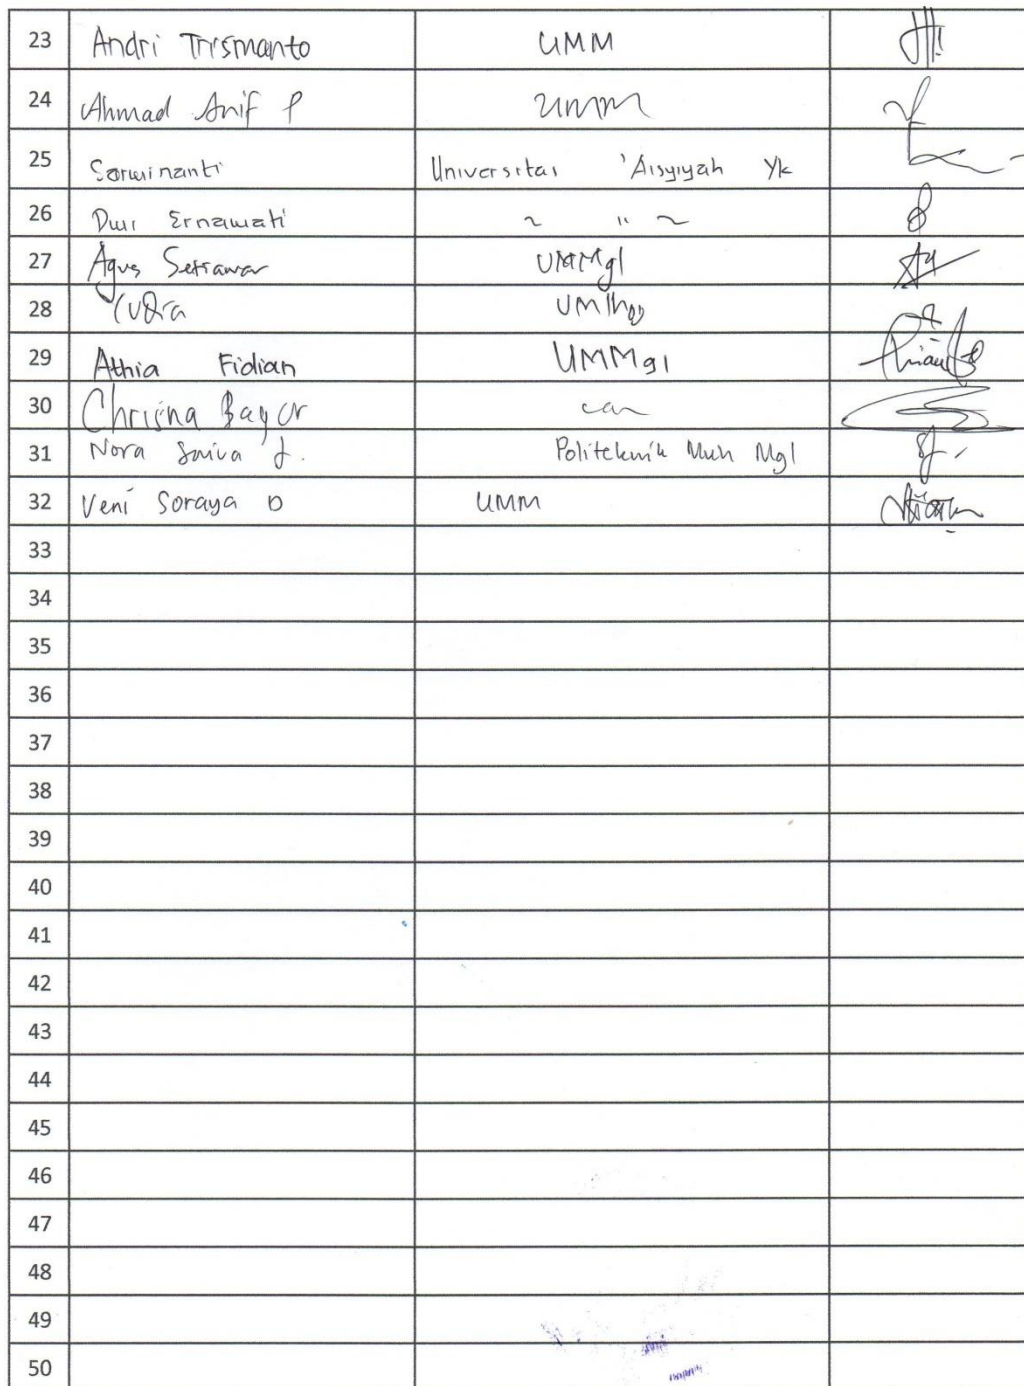 23 Andri Trismanto UMM
24 Ahmad Arif P UMM
25 Sarwinanti Universitas 'Aisyiyah Yk
26 Dwi Ernawati ~ " ~
27 Agus Setiawan UMMgl
28 Yudia
29 Athia Fidian UMMgl
30 Chrisna Bayu
31 Nora Saiva J. Politeknik Muh Mgl
32 Veni Soraya D UMM
33
34
35
36
37
38
39
40
41
42
43
44
45
46
47
48
49
50